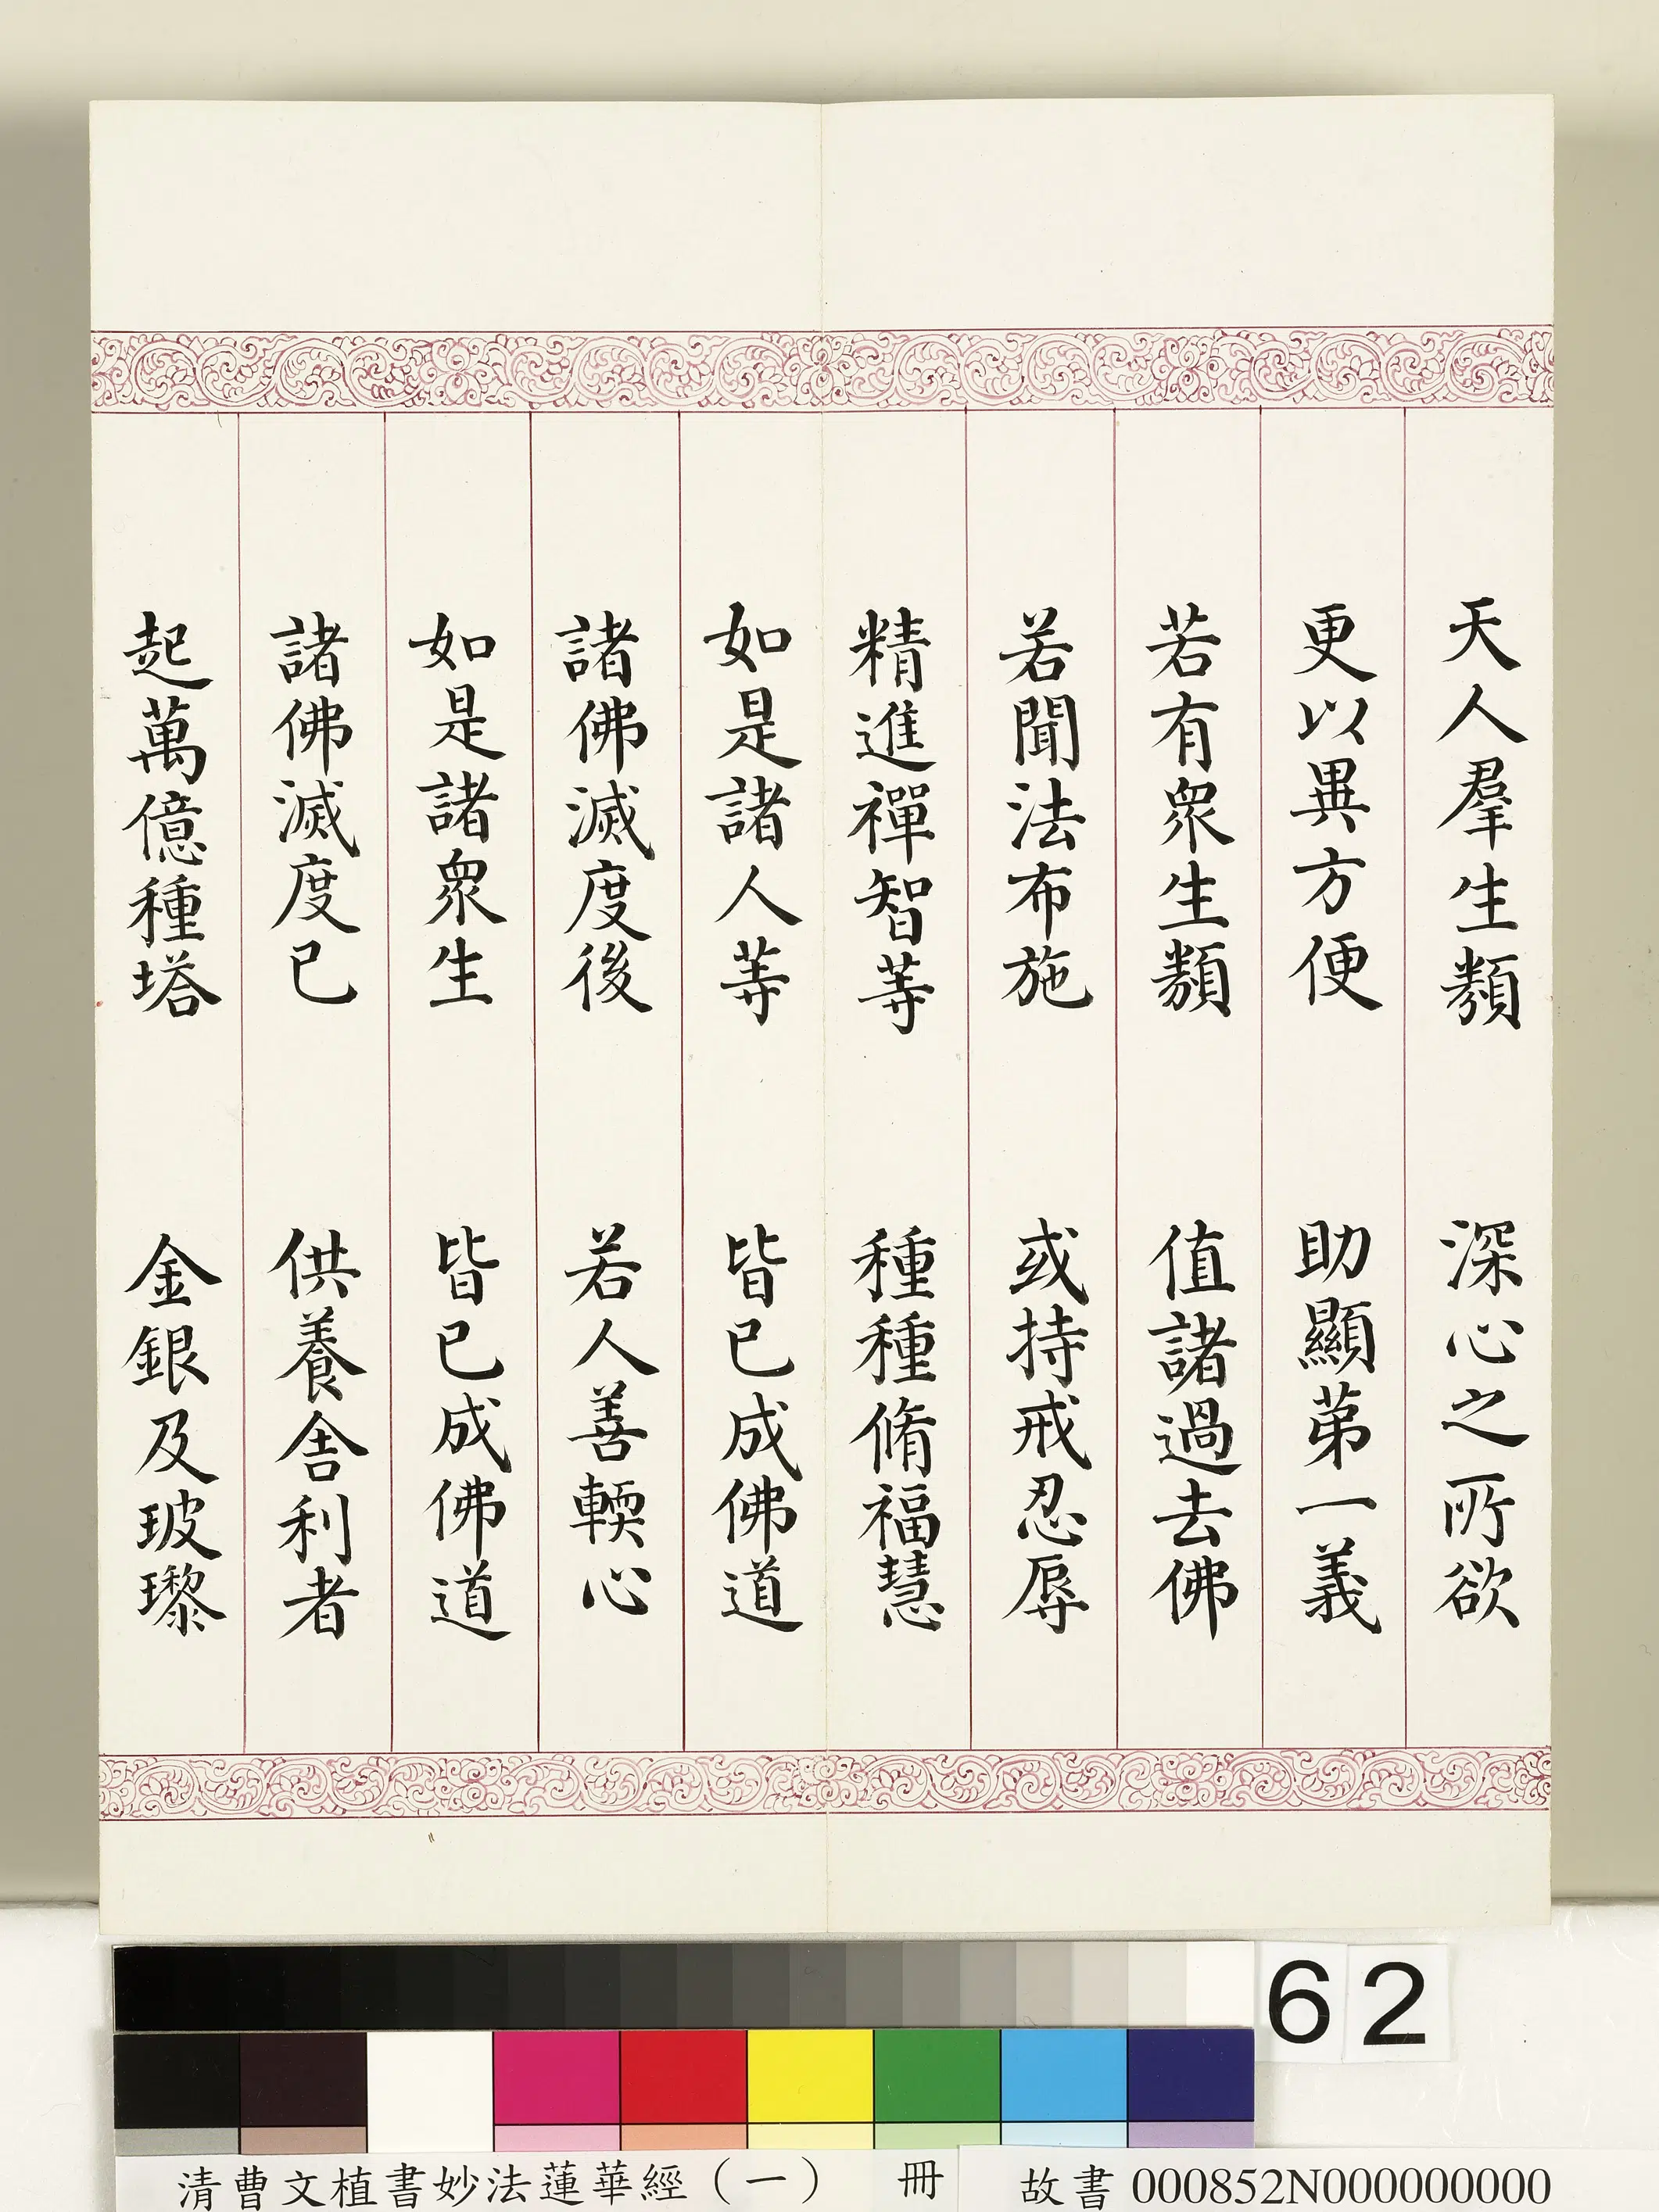 天人羣生類　深心之所欲
更以異方便　助顯苐一義
若有衆生類　值諸過去佛
若聞法布施　或持戒忍辱
精進禪智等　種種脩福慧
如是諸人等　皆已成佛道
諸佛滅度後　若人善輭心
如是諸衆生　皆已成佛道
諸佛滅度已　供養舍利者
起萬億種塔　金銀及玻瓈
62
清曹文植書妙法蓮華經（一）　冊
故書 000852N000000000